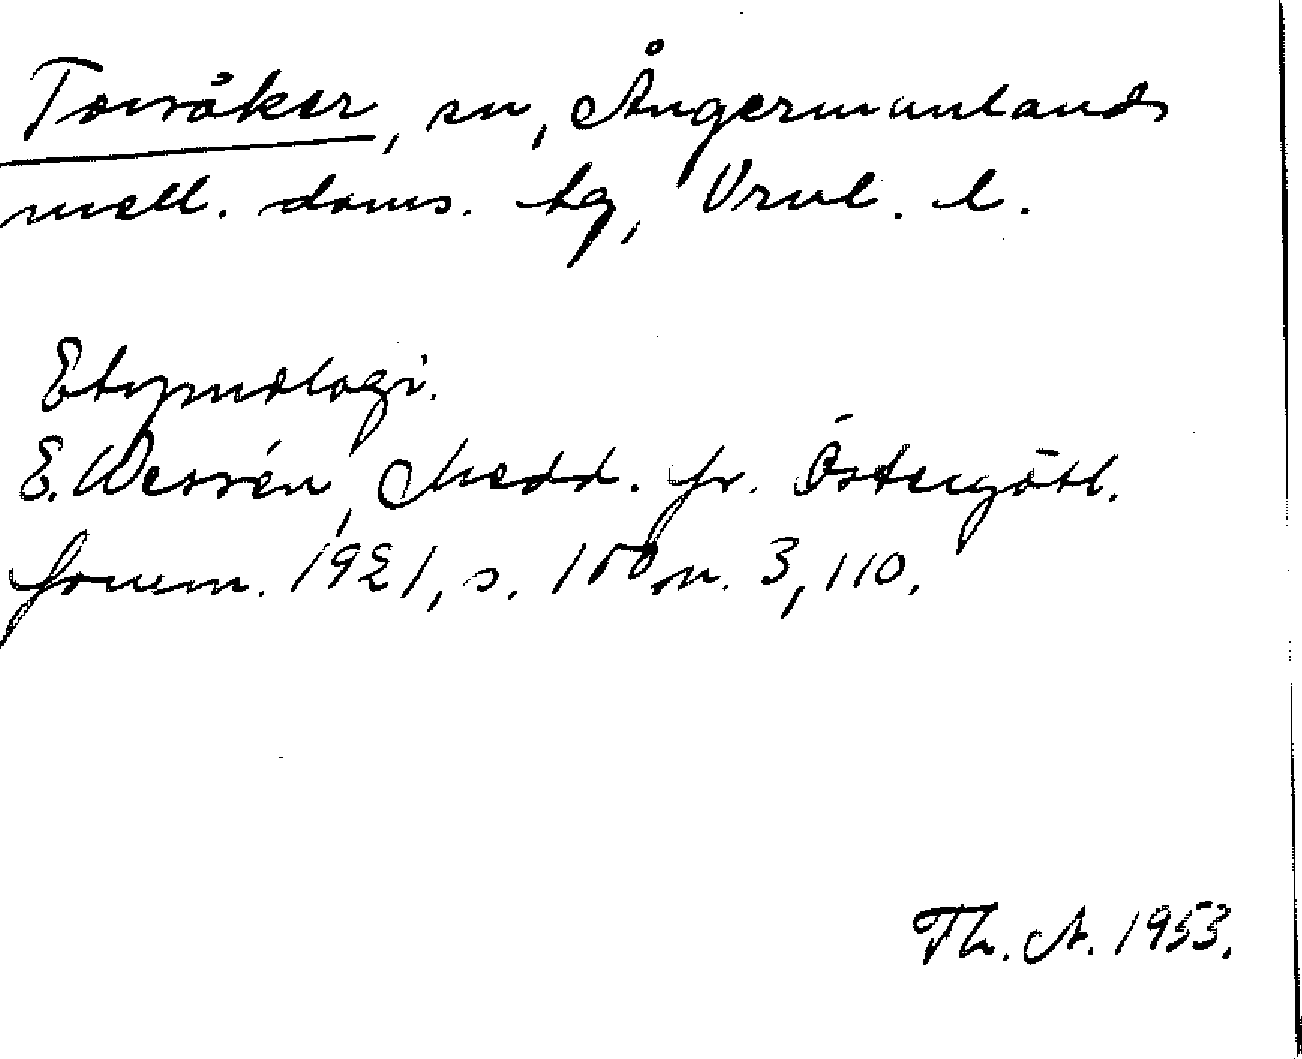 Torsåker, sn, Ångermanlands
mell. doms. tg, Vrnl. l.
Etymologi.
E. Wessén, Medd. fr. Östergötl.
fornm. 1921, s. 100 n. 3, 110.
Th. A. 1953.